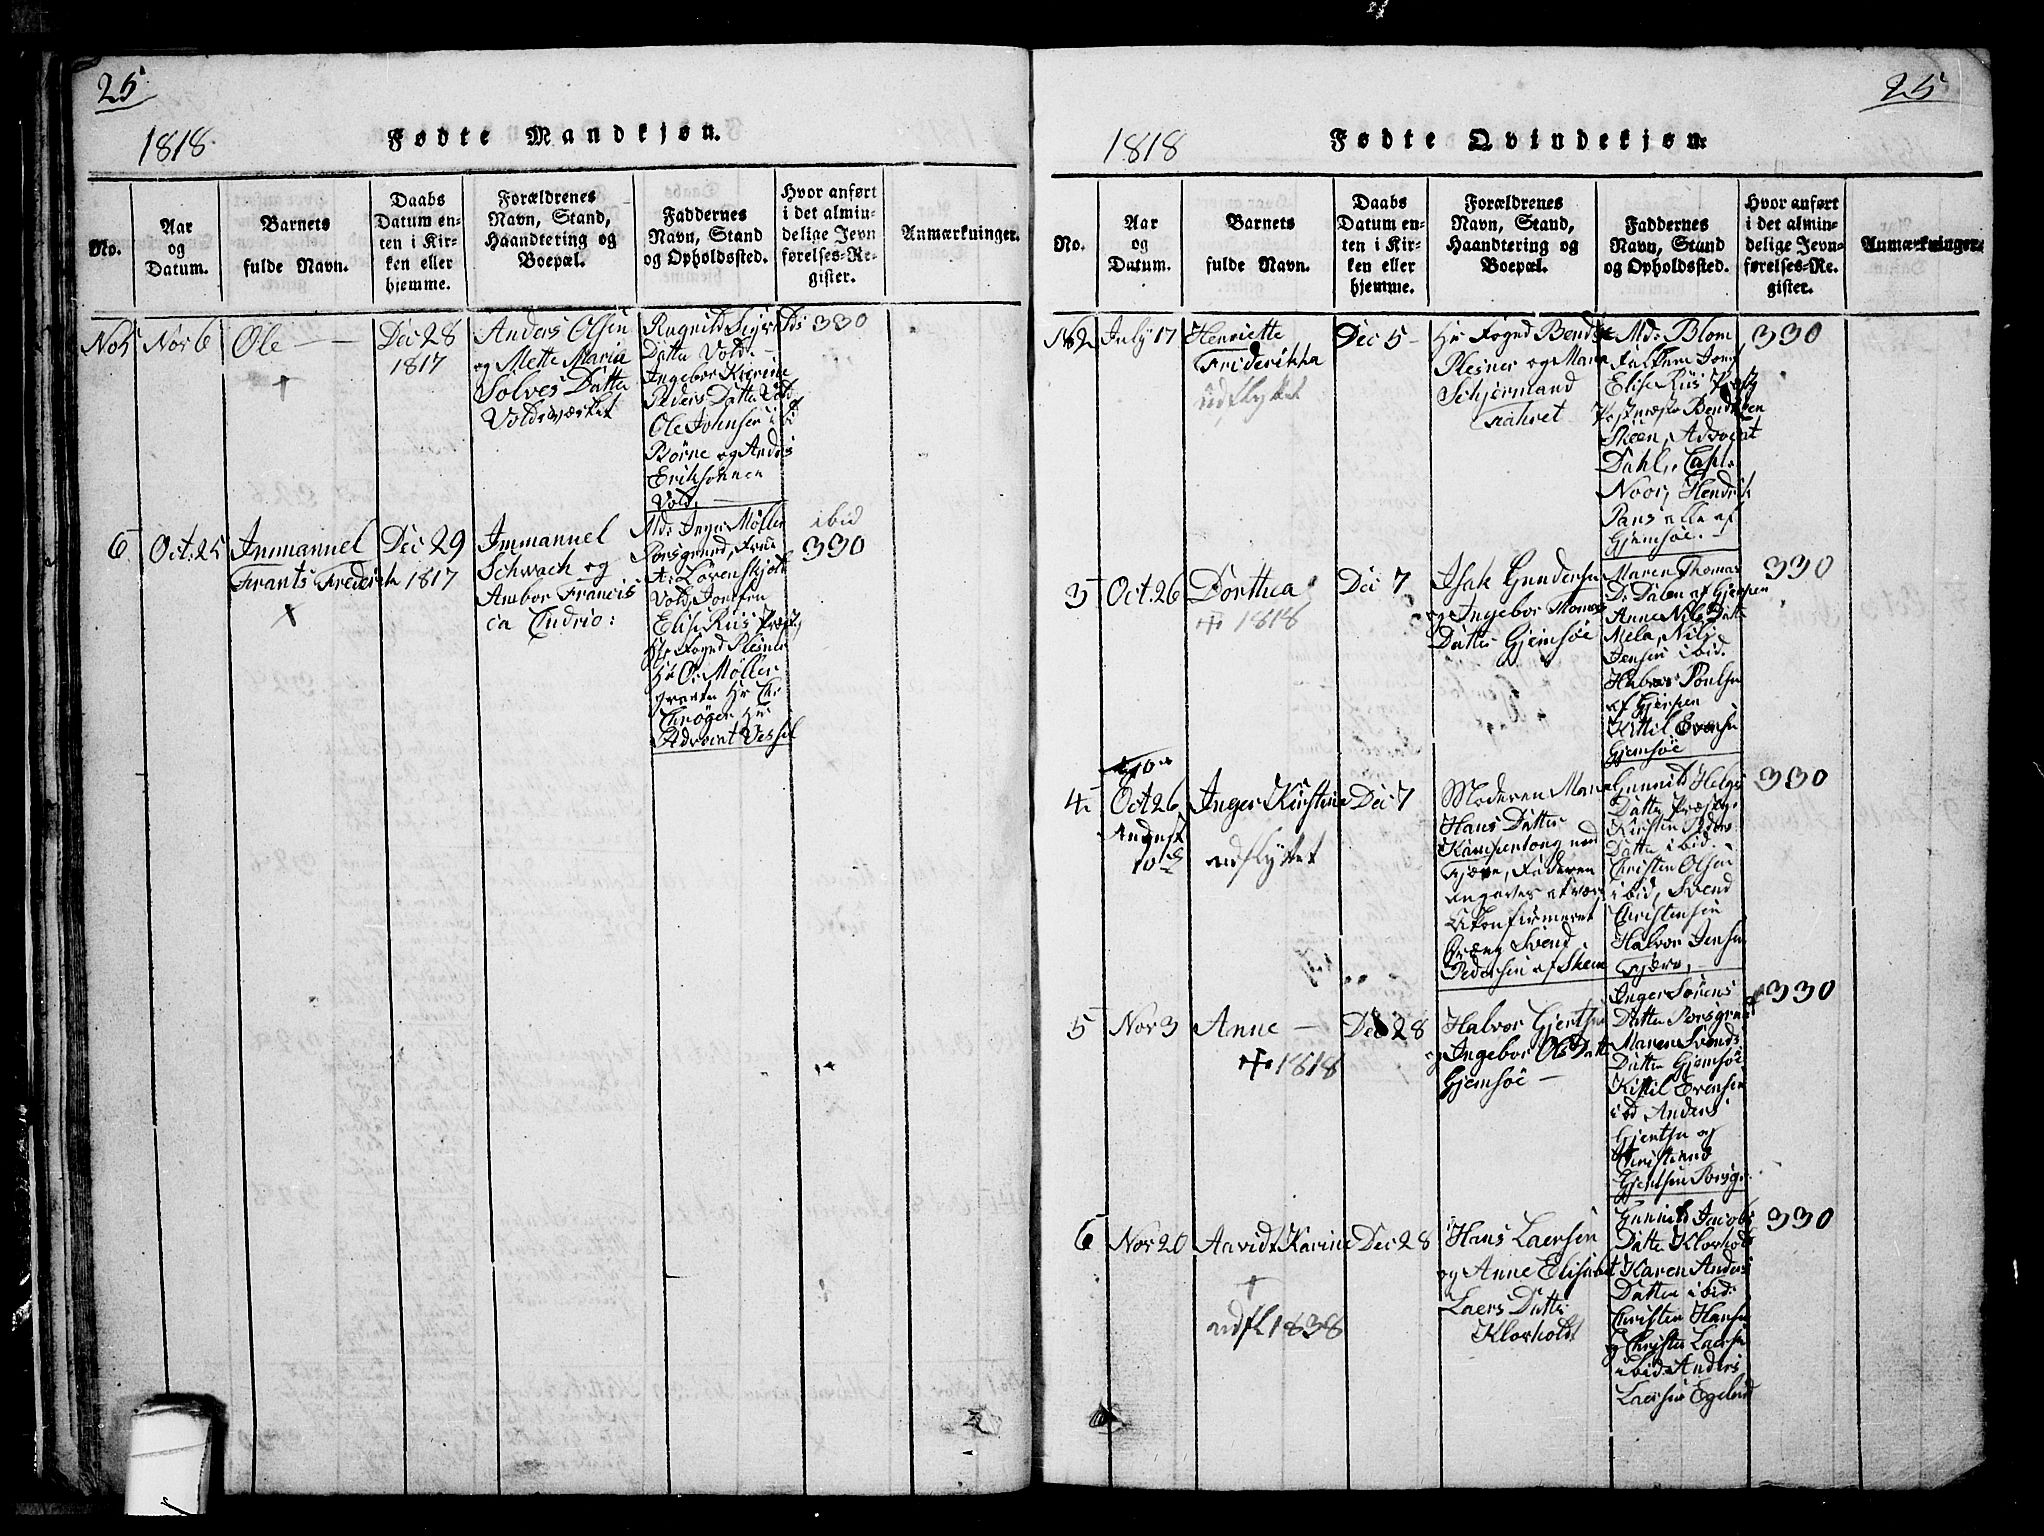 25
1818
Fødte Mandkjøn.
No.
Aar
og
Datum.
Barnets
fulde Navn.
Daabs
Datum en-
ten i Kir-
ken eller
hjemme.
Forældrenes
Navn, Stand,
Haandtering og
Boepæl.
Faddernes
Navn, Stand
og Opholdssted.
Hvor anført
i det almin-
delige Jevn
førelses-Re-
gister.
Anmærkninger.
No 5
Nov 6
Ole
+
Dec 28
1817
Anders Olsen
og Mette Maria
Solves Datter
Voldsværket
Datter Vold
Ingebor Karine
Peders Datter Vold
Ole Johnsen
Børne og Anders
Eriksønnen
Vold,
330
6
Oct. 25
Immanuel
Frants Frederich
+
Dec 29
1817
Immanuel
Schwach og
Ambor Francis
ca Cudrio:
Mds Inger Møller
Porsgrund, Frue
A. Løvenskjold
Vold, Jomfru
Elise Riis Præstg
Hr Fogd Plesner
Hr O. Møller
Hr Chr
Hr
Advocat Vessel
ibid
330
25
1818
Fødte Qvindekjøn.
No.
Aar
og
Datum.
Barnets
fulde Navn.
Daabs
Datum en-
ten i Kir-
ken eller
hjemme.
Forældrenes
Navn, Stand,
Haandtering og
Boepæl.
Faddernes
Navn, Stand
og Opholdssted.
Hvor anført
i det almin-
delige Jevn-
førelses-Re-
gister.
Anmærkninger.
No 2
July 17
Henriette
Friderikka
udflyttet
Dec 5
Hr Fogd Bendix
Plesner og Maria
Schjermand
Mds Blom
Elise Riis
Skeen, Advocat
Dahl, Capt.
Noor, Hendrik
Pans alle af
Gjemsøe.
330
3
Oct. 26
Dorthea
+ 1818
Dec 7
Isak Gundersen
og Ingebor Thomas
Datter Gjemsøe
Maren Thomas
Dr Dalen af Gjerpen
Anne Nils Datter
Mela, Nils
Jensen ibid.
Halvor Poulsen
af Gjerpen
Kittil Evensen
Gjemsøe
330
4
Oct 26
August
10de
Inger Kirstine
udflyttet
Dec 7
Moderen Maren
Hans Datter
Faderen
angaves at være
Ukonfirmeret
Dreng Svend
Pedersen af Skeen
Gunnild Helgs
Datter Præstg.
Kirsten Peders
Datter ibid.
Christen Olsen
ibid, Svend
Christensen
Halvor Jensen
330
5
Nov 3
Anne
+ 1818
Dec 28
Halvor Gjertsen
og Ingebor Ols Datter
Gjemsøe
Inger Sørens
Datter Porsgrund
Maren Svends
Datter Gjemsøe
Kittil Evensen
ibid Anders
Gjertsen og
Christiend
Gjertsen Porsgr.
330
6
Nov 20
Aavidt Karine
+
udfl 1838
Dec 28
Hans Laersen
og Anne Elisabet
Laers Datter
Klovholdt
Gunnild Jacobs
Datter Klovholdt
Karen Anders
Datter ibid:
Christen Hansen
og Christen Laersen
ibid: Anders
Laersen Egelund
330